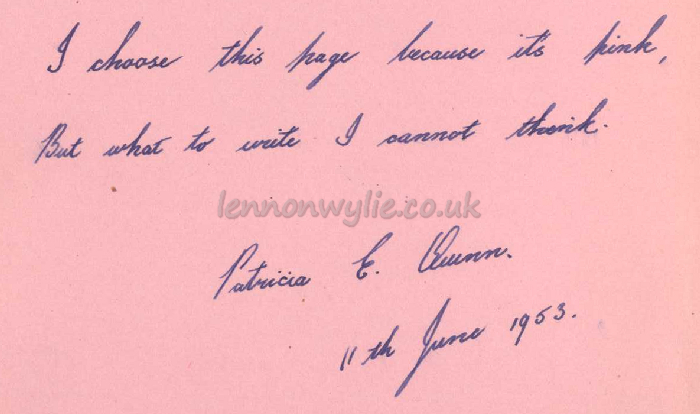 I choose this page because it's pink,
But what to write I cannot think.
lennonwylie.co.uk
Patricia E. Quinn.
11th June 1953.